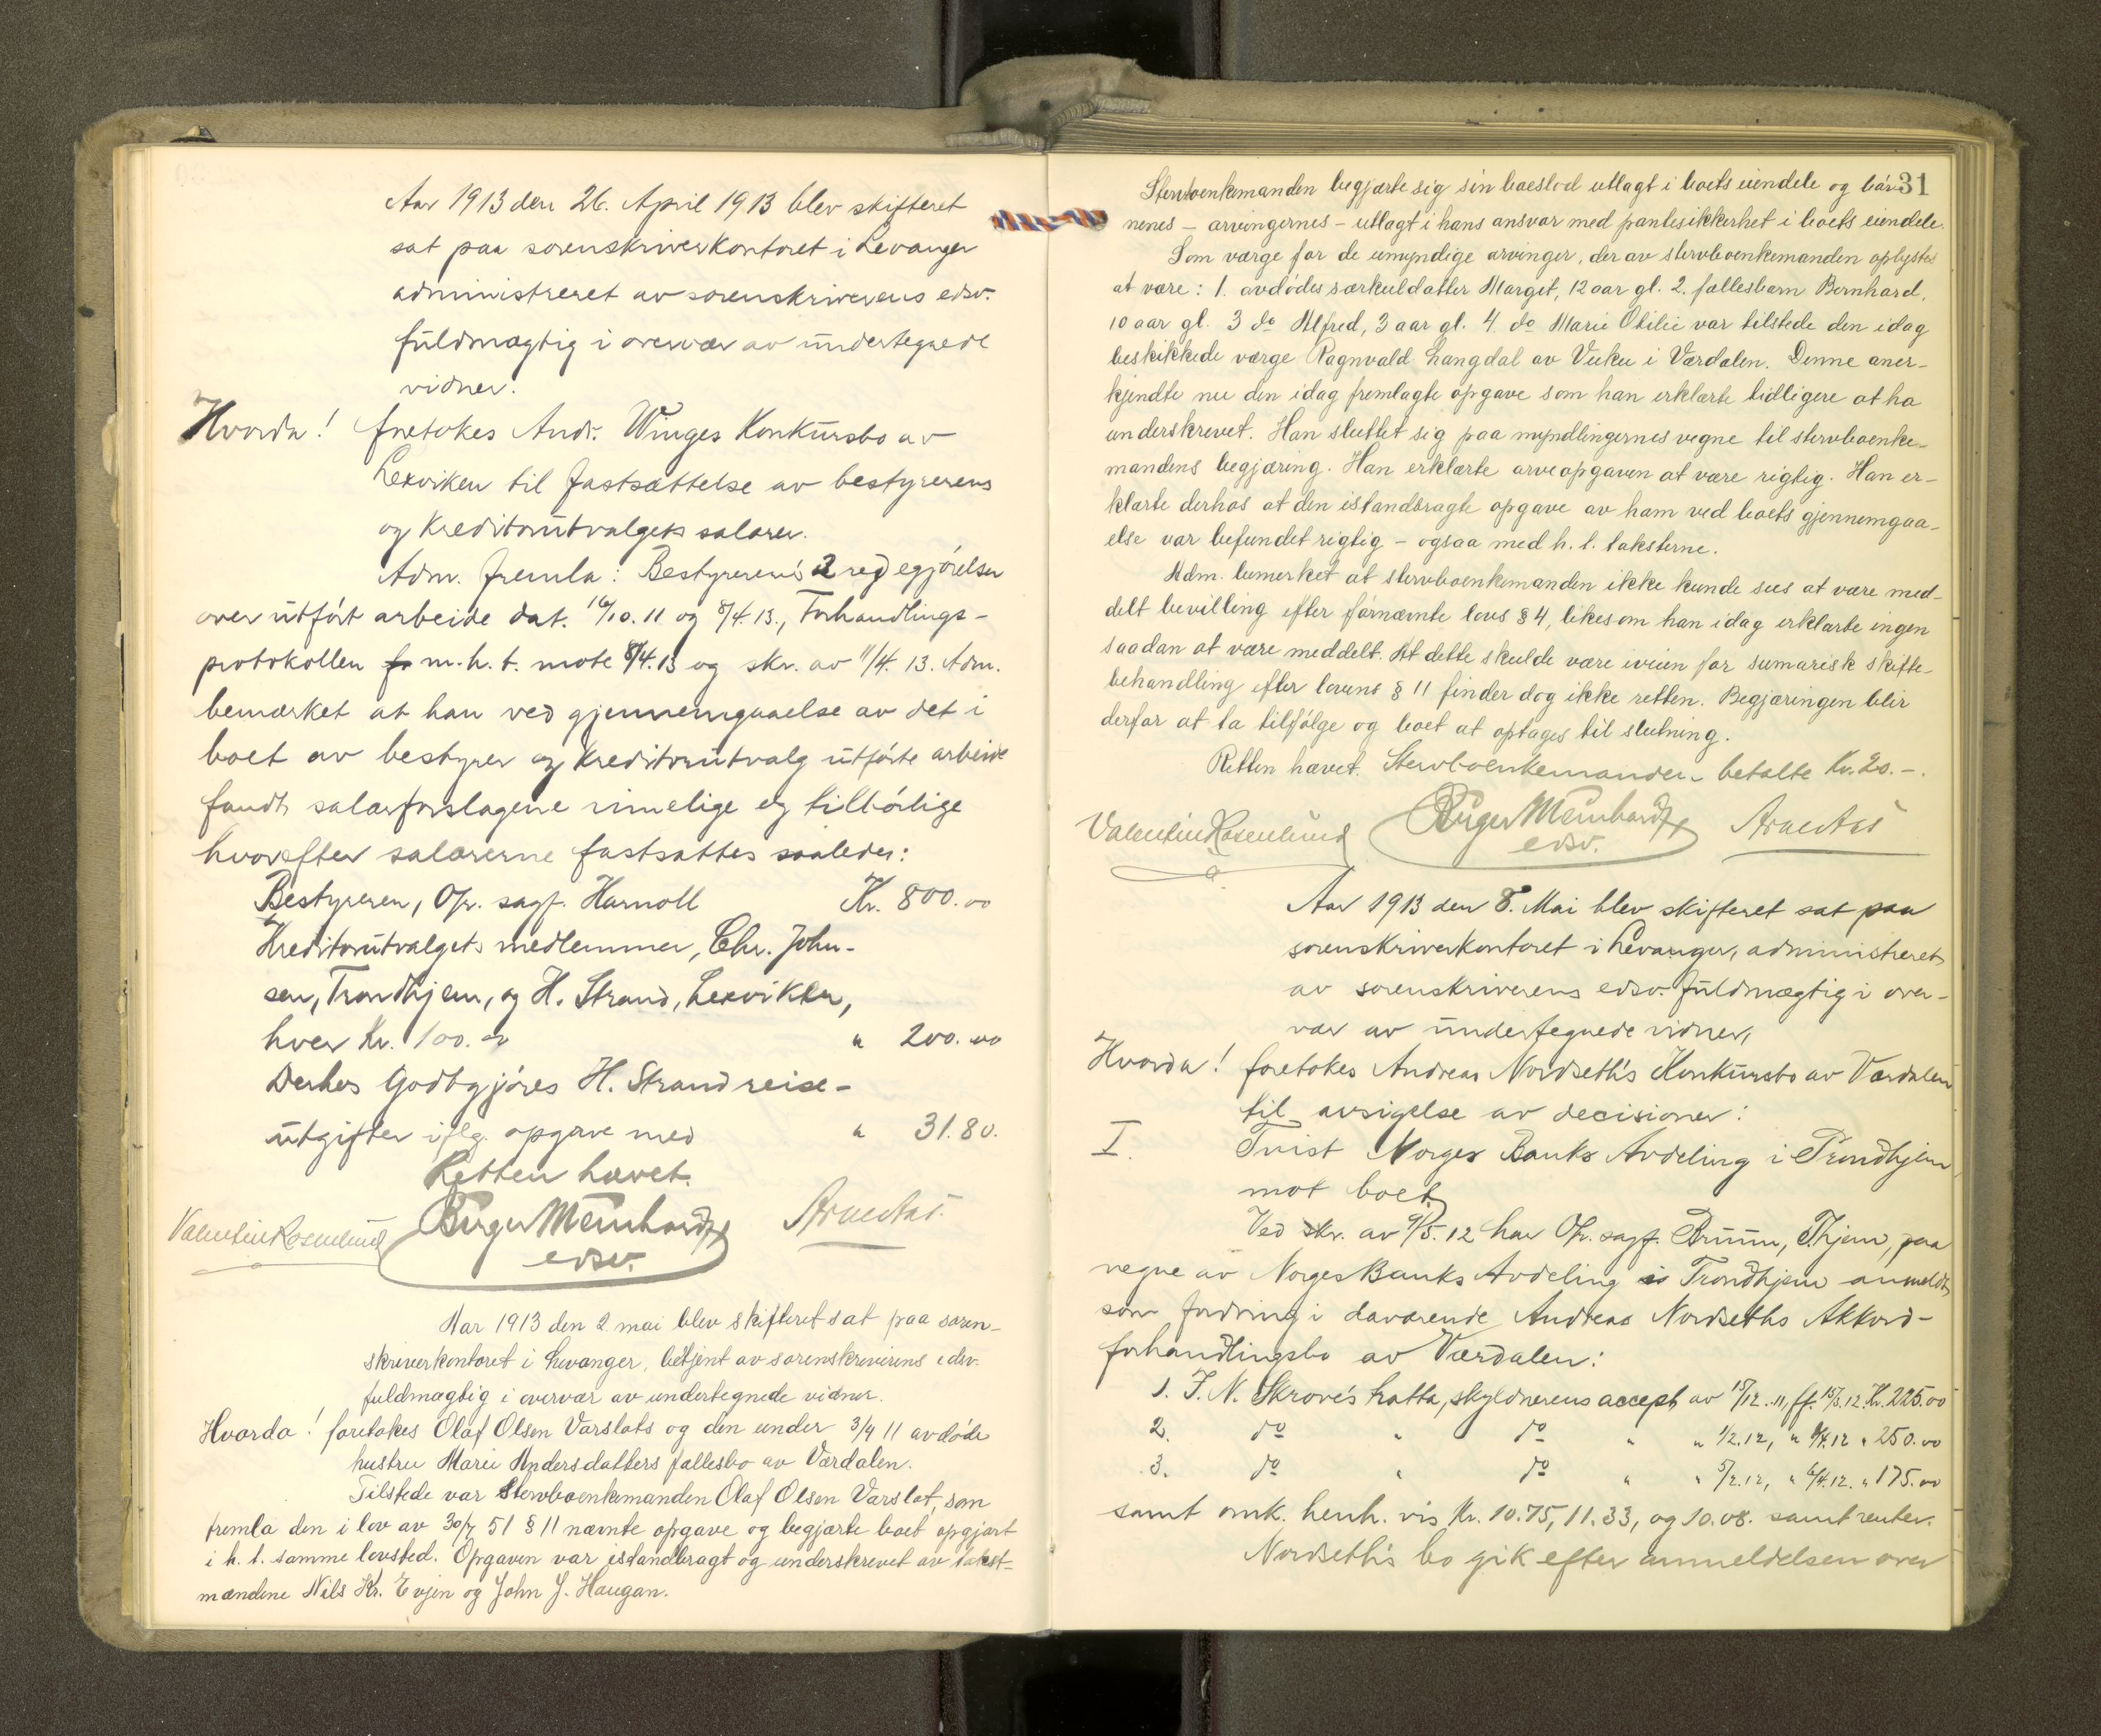 Aar 1913 den 26. April 1913 blev skifteret
sat paa sorenskriverkontoret i Levanger
administreret av sorenskriverens edsv.
fuldmægtig i overvær av undertegnede
vidner.
Hvorda! foretokes Andr. Winges Konkursbo av
Lexviken til fastsættelse av bestyrerens
og Kreditorutvalgets salærer.
Adm. fremla: Bestyrerens 2 redegjørelser
over utført arbeide dat. 16/10. 11 og 8/4. 13., Forhandlings-
protokollen m.h.t. møte 8/4. 13 og skr. av 11/4. 13. Adm.
bemærket at han ved gjennemgaaelse av det i
boet av bestyrer og Kreditorutvalg utførte arbeide
fandt salærforslagene rimelige og tilbørlige
hvorefter salærerne fastsattes saaledes:
Bestyreren, Ofr. sagf. Harnoll Kr. 800.00
Kreditorutvalgets medlemmer, Chr. John-
sen, Trondhjem, og H. Strand, Lexviken,
hver Kr. 100.00 " 200.00
Derhos godtgjøres H. Strand reise-
utgifter iflg. opgave med " 31.80.
Retten hævet.
Valentin Rosenlund Birger Meinhardt Arne Aas.
edsv.
Aar 1913 den 2 mai blev skifteret sat paa soren-
skriverkontoret i Levanger, betjent av sorenskriverens edsv.
fuldmægtig i overvær av undertegnede vidner.
Hvorda! foretokes Olaf Olsen Varslots og den under 3/4 11 avdøde
hustru Marie Andersdatters fællesbo av Værdalen.
Tilstede var Stervboenkemanden Olaf Olsen Varslot, som
fremla den i lov av 30/7 51 § 11 nævnte opgave og begjærte boet opgjort
i h. t. samme lovsted. Opgaven var istandbragt og underskrevet av takst-
mændene Nils Kr. Evjen og John J. Haugan.
31
Stervboenkemanden begjærte sig sin boeslod utlagt i boets eiendele og bør-
nenes – arvingernes – utlagt i hans ansvar med pantesikkerhet i boets eiendele.
Som værge for de umyndige arvinger, der av stervboenkemanden oplystes
at være: 1. avdødes særkuldatter Margit, 12 aar gl. 2. fællesbarn Bernhard,
10 aar gl. 3 do Alfred, 3 aar gl. 4. do Marie Otilie var tilstede den idag
beskikkede værge Ragnvald Langdal av Vuku i Værdalen. Denne aner-
kjendte nu den idag fremlagte opgave som han erklærte tidligere at ha
underskrevet. Han sluttet sig paa myndlingernes vegne til stervboenke-
mandens begjæring. Han erklærte arveopgaven at være rigtig. Han er-
klærte derhos at den istandbragte opgave av ham ved boets gjennemgaa-
else var befundet rigtig – ogsaa med h. t. taksterne.
Adm. bemerket at stervboenkemanden ikke kunde sees at være med-
delt bevilling efter førnævnte lovs § 4, likesom han idag erklærte ingen
saadan at være meddelt. At dette skulde være iveien for sumarisk skifte-
behandling efter lovens § 11 finder dog ikke retten. Begjæringen blir
derfor at ta tilfølge og boet at optages til slutning.
Retten hævet. Stervboenkemanden betalte Kr. 20.-.
Valentin Rosenlund Birger Meinhardt Arne Aas
edsv.
Aar 1913 den 8. Mai blev skifteret sat paa
sorenskriverkontoret i Levanger, administreret
av sorenskriverens edsv. fuldmægtig i over-
vær av undertegnede vidner,
Hvorda! foretokes Andreas Nordseth's Konkursbo av Værdalen
til avsigelse av decisioner:
I. Tvist Norges Banks Avdeling i Trondhjem
mot boet.
Ved skr. av 9/5. 12 har Ofr. sagf. Bruun, Thjem, paa
vegne av Norges Banks Avdeling i Trondhjem anmeldt
som fordring i daværende Andreas Nordseths Akkord-
forhandlingsbo av Værdalen:
1. J. N. Skrove's tratta, skyldnerens accept av 15/12. 11, ff. 15/3. 12. Kr. 225.00
2. do " do " " 1/2. 12, " 9/4. 12 " 250.00
3. do " do " " 5/2. 12, " 6/4. 12. " 175.00
samt omk. henh. vis Kr. 10.75, 11.33, og 10.08. samt renter.
Nordseth's bo gik efter anmeldelsen over